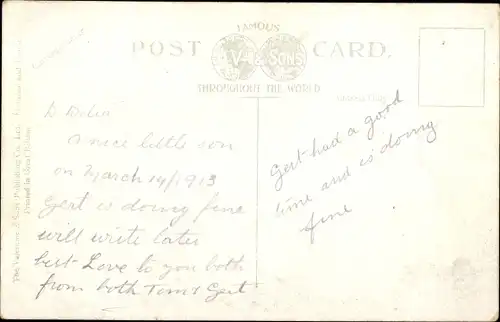 FAMOUS
POST CARD.
THROUGHOUT THE WORLD
a nice little son
on March 14/1913
Gert is doing fine
will write later
best Love to you both
from both Tom & Gert
Gert had a good
time and is doing
fine
Printed in Great Britain